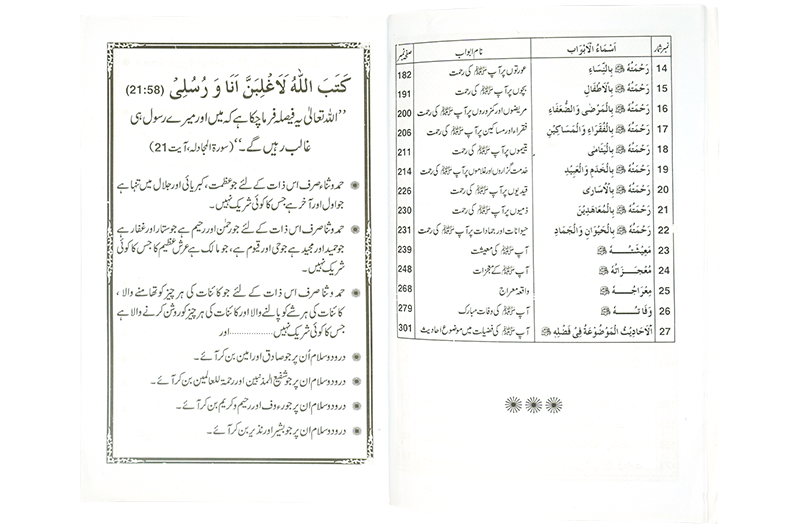 نمبر شمار اَسْمَاءُ الْاَبْوَاب نام ابواب صفحہ نمبر
14 رَحْمَتُهٗ ﷺ بِالنِّسَاءِ عورتوں پر آپ ﷺ کی رحمت 182
15 رَحْمَتُهٗ ﷺ بِالْاَطْفَالِ بچوں پر آپ ﷺ کی رحمت 191
16 رَحْمَتُهٗ ﷺ بِالْمَرْضٰى وَ الضُّعَفَاءِ مریضوں اور کمزوروں پر آپ ﷺ کی رحمت 200
17 رَحْمَتُهٗ ﷺ بِالْفُقَرَاءِ وَ الْمَسَاكِيْنِ فقراء اور مساکین پر آپ ﷺ کی رحمت 206
18 رَحْمَتُهٗ ﷺ بِالْيَتَامٰى یتیموں پر آپ ﷺ کی رحمت 211
19 رَحْمَتُهٗ ﷺ بِالْخَدَمِ وَ الْعَبِيْدِ خدمت گزاروں اور غلاموں پر آپ ﷺ کی رحمت 214
20 رَحْمَتُهٗ ﷺ بِالْاُسَارٰى قیدیوں پر آپ ﷺ کی رحمت 226
21 رَحْمَتُهٗ ﷺ بِالْمُعَاهَدِيْنَ ذمیوں پر آپ ﷺ کی رحمت 230
22 رَحْمَتُهٗ ﷺ بِالْحَيْوَانِ وَ الْجَمَادِ حیوانات اور جمادات پر آپ ﷺ کی رحمت 231
23 مَعِيْشَتُـــهٗ ﷺ آپ ﷺ کی معیشت 239
24 مُعْجِـزَاتُهٗ ﷺ آپ ﷺ کے معجزات 248
25 مِعْرَاجُـــهٗ ﷺ واقعہ معراج 268
26 وَفَاتُـــهٗ ﷺ آپ ﷺ کی وفات مبارک 279
27 اَلْاَحَادِيْثُ الْمَوْضُوْعَةُ فِىْ فَضْلِهٖ ﷺ آپ ﷺ کی فضیلت میں موضوع احادیث 301
كَتَبَ اللّٰهُ لَاَغْلِبَنَّ اَنَا وَ رُسُلِىْ (21:58)
’’اللہ تعالیٰ یہ فیصلہ فرما چکا ہے کہ میں اور میرے رسول ہی
غالب رہیں گے۔‘‘ (سورۃ المجادلہ، آیت 21)
حمد و ثنا صرف اس ذات کے لئے جو عظمت، کبریائی اور جلال میں تنہا ہے
جو اول اور آخر ہے جس کا کوئی شریک نہیں۔
حمد و ثنا صرف اس ذات کے لئے جو رحمٰن اور رحیم ہے جو ستار اور غفار ہے
جو حمید اور مجید ہے جو حی اور قیوم ہے، جو مالک ہے عرش عظیم کا جس کا کوئی
شریک نہیں۔
حمد و ثنا صرف اس ذات کے لئے جو کائنات کی ہر چیز کو تھامنے والا،
کائنات کی ہر شئے کو پالنے والا اور کائنات کی ہر چیز کو روشن کرنے والا ہے
جس کا کوئی شریک نہیں.................اور
درود و سلام اُن پر جو صادق اور امین بن کر آئے۔
درود و سلام ان پر جو شفیع المذنبین اور رحمۃ للعالمین بن کر آئے۔
درود و سلام ان پر جو رءوف اور رحیم و کریم بن کر آئے۔
درود و سلام ان پر جو بشیر اور نذیر بن کر آئے۔